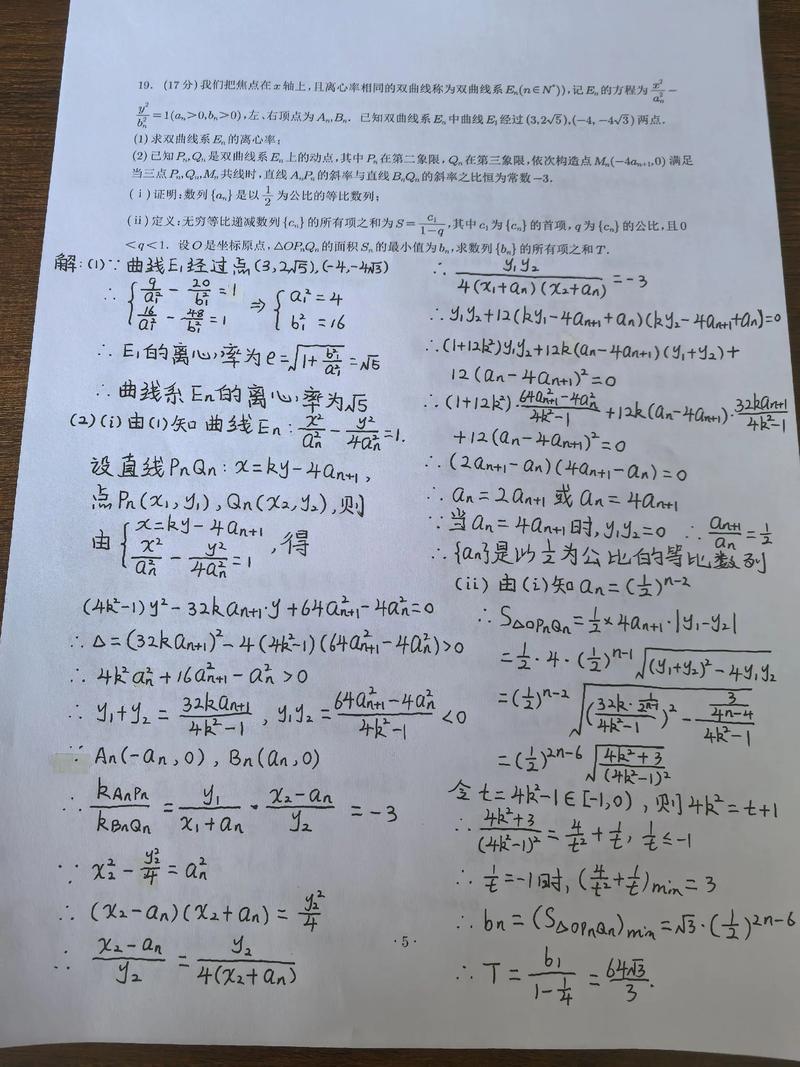 19. (17分)我们把焦点在x轴上,且离心率相同的双曲线称为双曲线系Eₙ(n∈N*)),记Eₙ的方程为x²/aₙ²−
y²/bₙ²=1(aₙ>0,bₙ>0),左、右顶点为Aₙ,Bₙ. 已知双曲线系Eₙ中曲线E₁经过(3,2√5),(-4,-4√3)两点.
(1)求双曲线系Eₙ的离心率;
(2)已知Pₙ,Qₙ是双曲线系Eₙ上的动点,其中Pₙ在第二象限,Qₙ在第三象限,依次构造点Mₙ(-4aₙ₊₁,0)满足
当三点Pₙ,Qₙ,Mₙ共线时,直线AₙPₙ的斜率与直线BₙQₙ的斜率之比恒为常数-3.
(ⅰ)证明:数列{aₙ}是以1/2为公比的等比数列;
(ⅱ)定义:无穷等比递减数列{cₙ}的所有项之和为S=c₁/(1-q),其中c₁为{cₙ}的首项,q为{cₙ}的公比,且0
<q<1. 设O是坐标原点,△OPₙQₙ的面积Sₙ的最小值为bₙ,求数列{bₙ}的所有项之和T.
解:(1)∵曲线E₁经过点(3,2√5),(-4,-4√3)
∴ { 9/a₁² - 20/b₁² = 1
16/a₁² - 48/b₁² = 1 ⇒ { a₁² = 4
b₁² = 16
∴ E₁的离心率为e=√(1+b₁²/a₁²)=√5
∴ 曲线系Eₙ的离心率为√5
(2)(i)由(1)知曲线Eₙ: x²/aₙ² - y²/4aₙ² = 1.
设直线PₙQₙ: x=ky-4aₙ₊₁,
点Pₙ(x₁,y₁), Qₙ(x₂,y₂),则
由 { x=ky-4aₙ₊₁
x²/aₙ² - y²/4aₙ² = 1 ,得
(4k²-1)y²-32kaₙ₊₁·y+64aₙ₊₁²-4aₙ²=0
∴ Δ=(32kaₙ₊₁)²-4(4k²-1)(64aₙ₊₁²-4aₙ²)>0
∴ 4k²aₙ²+16aₙ₊₁²-aₙ²>0
∴ y₁+y₂ = 32kaₙ₊₁/(4k²-1) , y₁y₂ = (64aₙ₊₁²-4aₙ²)/(4k²-1) <0
∵ Aₙ(-aₙ,0), Bₙ(aₙ,0)
∴ k_AₙPₙ/k_BₙQₙ = y₁/(x₁+aₙ) · (x₂-aₙ)/y₂ = -3
∵ x₂² - y₂²/4 = aₙ²
∴ (x₂-aₙ)(x₂+aₙ) = y₂²/4
∴ (x₂-aₙ)/y₂ = y₂/4(x₂+aₙ)
∴ y₁y₂/4(x₁+aₙ)(x₂+aₙ) = -3
∴ y₁y₂+12(ky₁-4aₙ₊₁+aₙ)(ky₂-4aₙ₊₁+aₙ)=0
∴ (1+12k²)y₁y₂+12k(aₙ-4aₙ₊₁)(y₁+y₂)+
12(aₙ-4aₙ₊₁)²=0
∴ (1+12k²)·(64aₙ₊₁²-4aₙ²)/(4k²-1) +12k(aₙ-4aₙ₊₁)·32kaₙ₊₁/(4k²-1)
+12(aₙ-4aₙ₊₁)²=0
∴ (2aₙ₊₁-aₙ)(4aₙ₊₁-aₙ)=0
∴ aₙ=2aₙ₊₁ 或 aₙ=4aₙ₊₁
∵ 当aₙ=4aₙ₊₁时,y₁y₂=0 ∴ aₙ₊₁/aₙ=1/2
∴ {aₙ}是以1/2为公比的等比数列
(ii) 由(i)知aₙ=(1/2)ⁿ⁻²
∴ S△OPₙQₙ=1/2×4aₙ₊₁·|y₁-y₂|
=1/2·4·(1/2)ⁿ⁻¹√((y₁+y₂)²-4y₁y₂)
=(1/2)ⁿ⁻²√((32k·1/2ⁿ⁻¹/(4k²-1))²-(3/4ⁿ⁻⁴)/(4k²-1))
=(1/2)²ⁿ⁻⁶√((4k²+3)/(4k²-1)²)
令t=4k²-1∈[-1,0),则4k²=t+1
∴ (4k²+3)/(4k²-1)²=4/t²+1/t, 1/t≤-1
∴ 1/t=-1时,(4/t²+1/t)min=3
∴ bₙ=(S△OPₙQₙ)min=√3·(1/2)²ⁿ⁻⁶
∴ T=b₁/(1-1/4)=64√3/3.
·5·